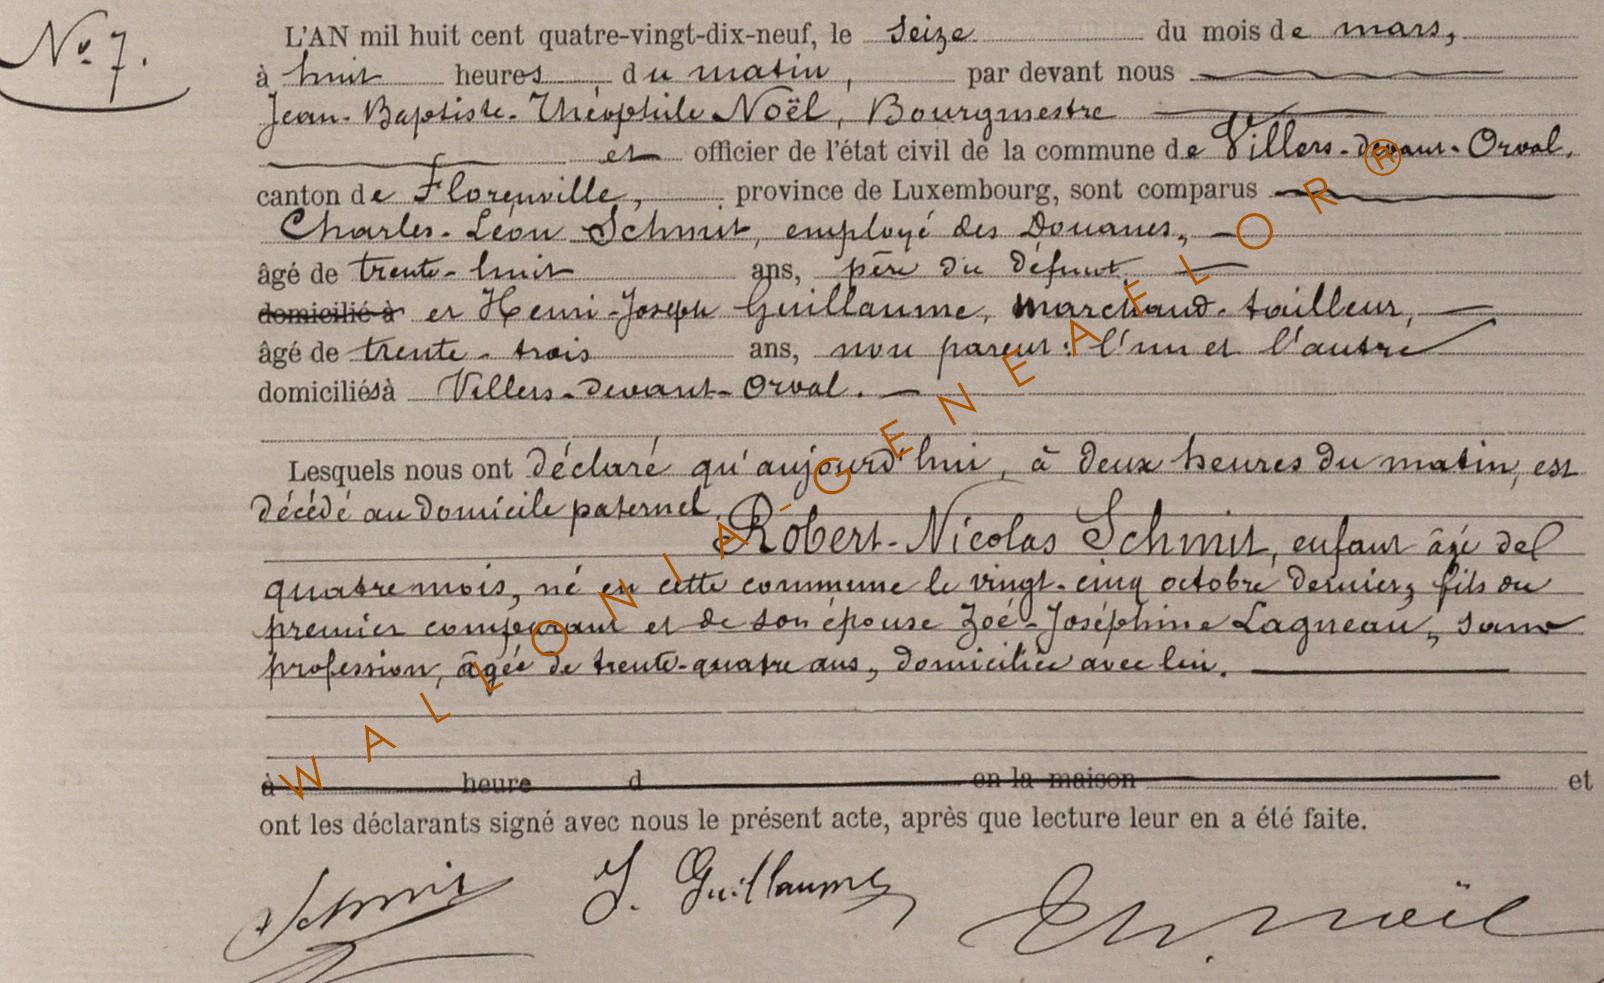 Nº 7.
L'AN mil huit cent quatre-vingt-dix-neuf, le seize du mois de mars,
à huit heures, du matin, par devant nous
Jean-Baptiste-Théophile Noël, Bourgmestre
et officier de l'état civil de la commune de Villers-devant-Orval,
canton de Florenville, province de Luxembourg, sont comparus
Charles-Léon Schmit, employé des Douanes,
âgé de trente-huit ans, père du défunt,
domicilié à et Henri-Joseph Guillaume, marchand-tailleur,
âgé de trente-trois ans, non parent: l'un et l'autre
domiciliés à Villers-devant-Orval.
Lesquels nous ont déclaré qu'aujourd'hui, à deux heures du matin, est
décédé au domicile paternel,
Robert-Nicolas Schmit, enfant âgé de
quatre mois, né en cette commune le vingt-cinq octobre dernier, fils du
premier comparant et de son épouse Zoé-Joséphine Lagneau, sans
profession, âgée de trente-quatre ans, domiciliée avec lui.
à heure d en la maison et
ont les déclarants signé avec nous le présent acte, après que lecture leur en a été faite.
Schmit J. Guillaume Th. Noël
WALLONIA-GENEAFLOR®